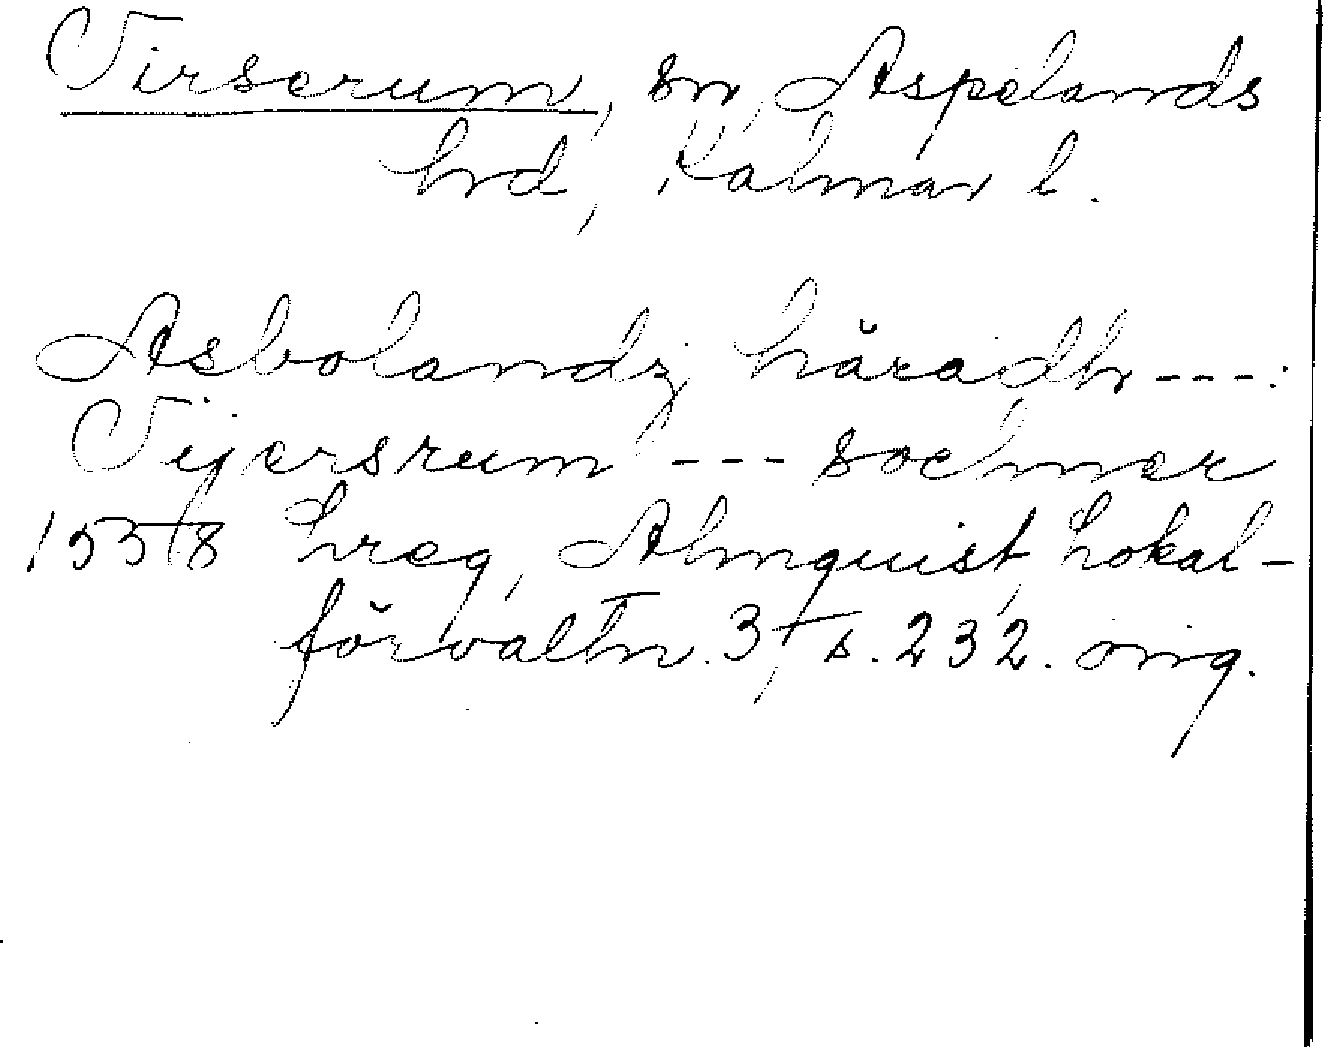 Virserum, sn, Aspelands
hrd, Kalmar l.
Asbolandz häradh ---:
Vijersrum --- sochner
1558 Lreg, Almquist, Lokal-
förvaltn. 3, s. 232. orig.